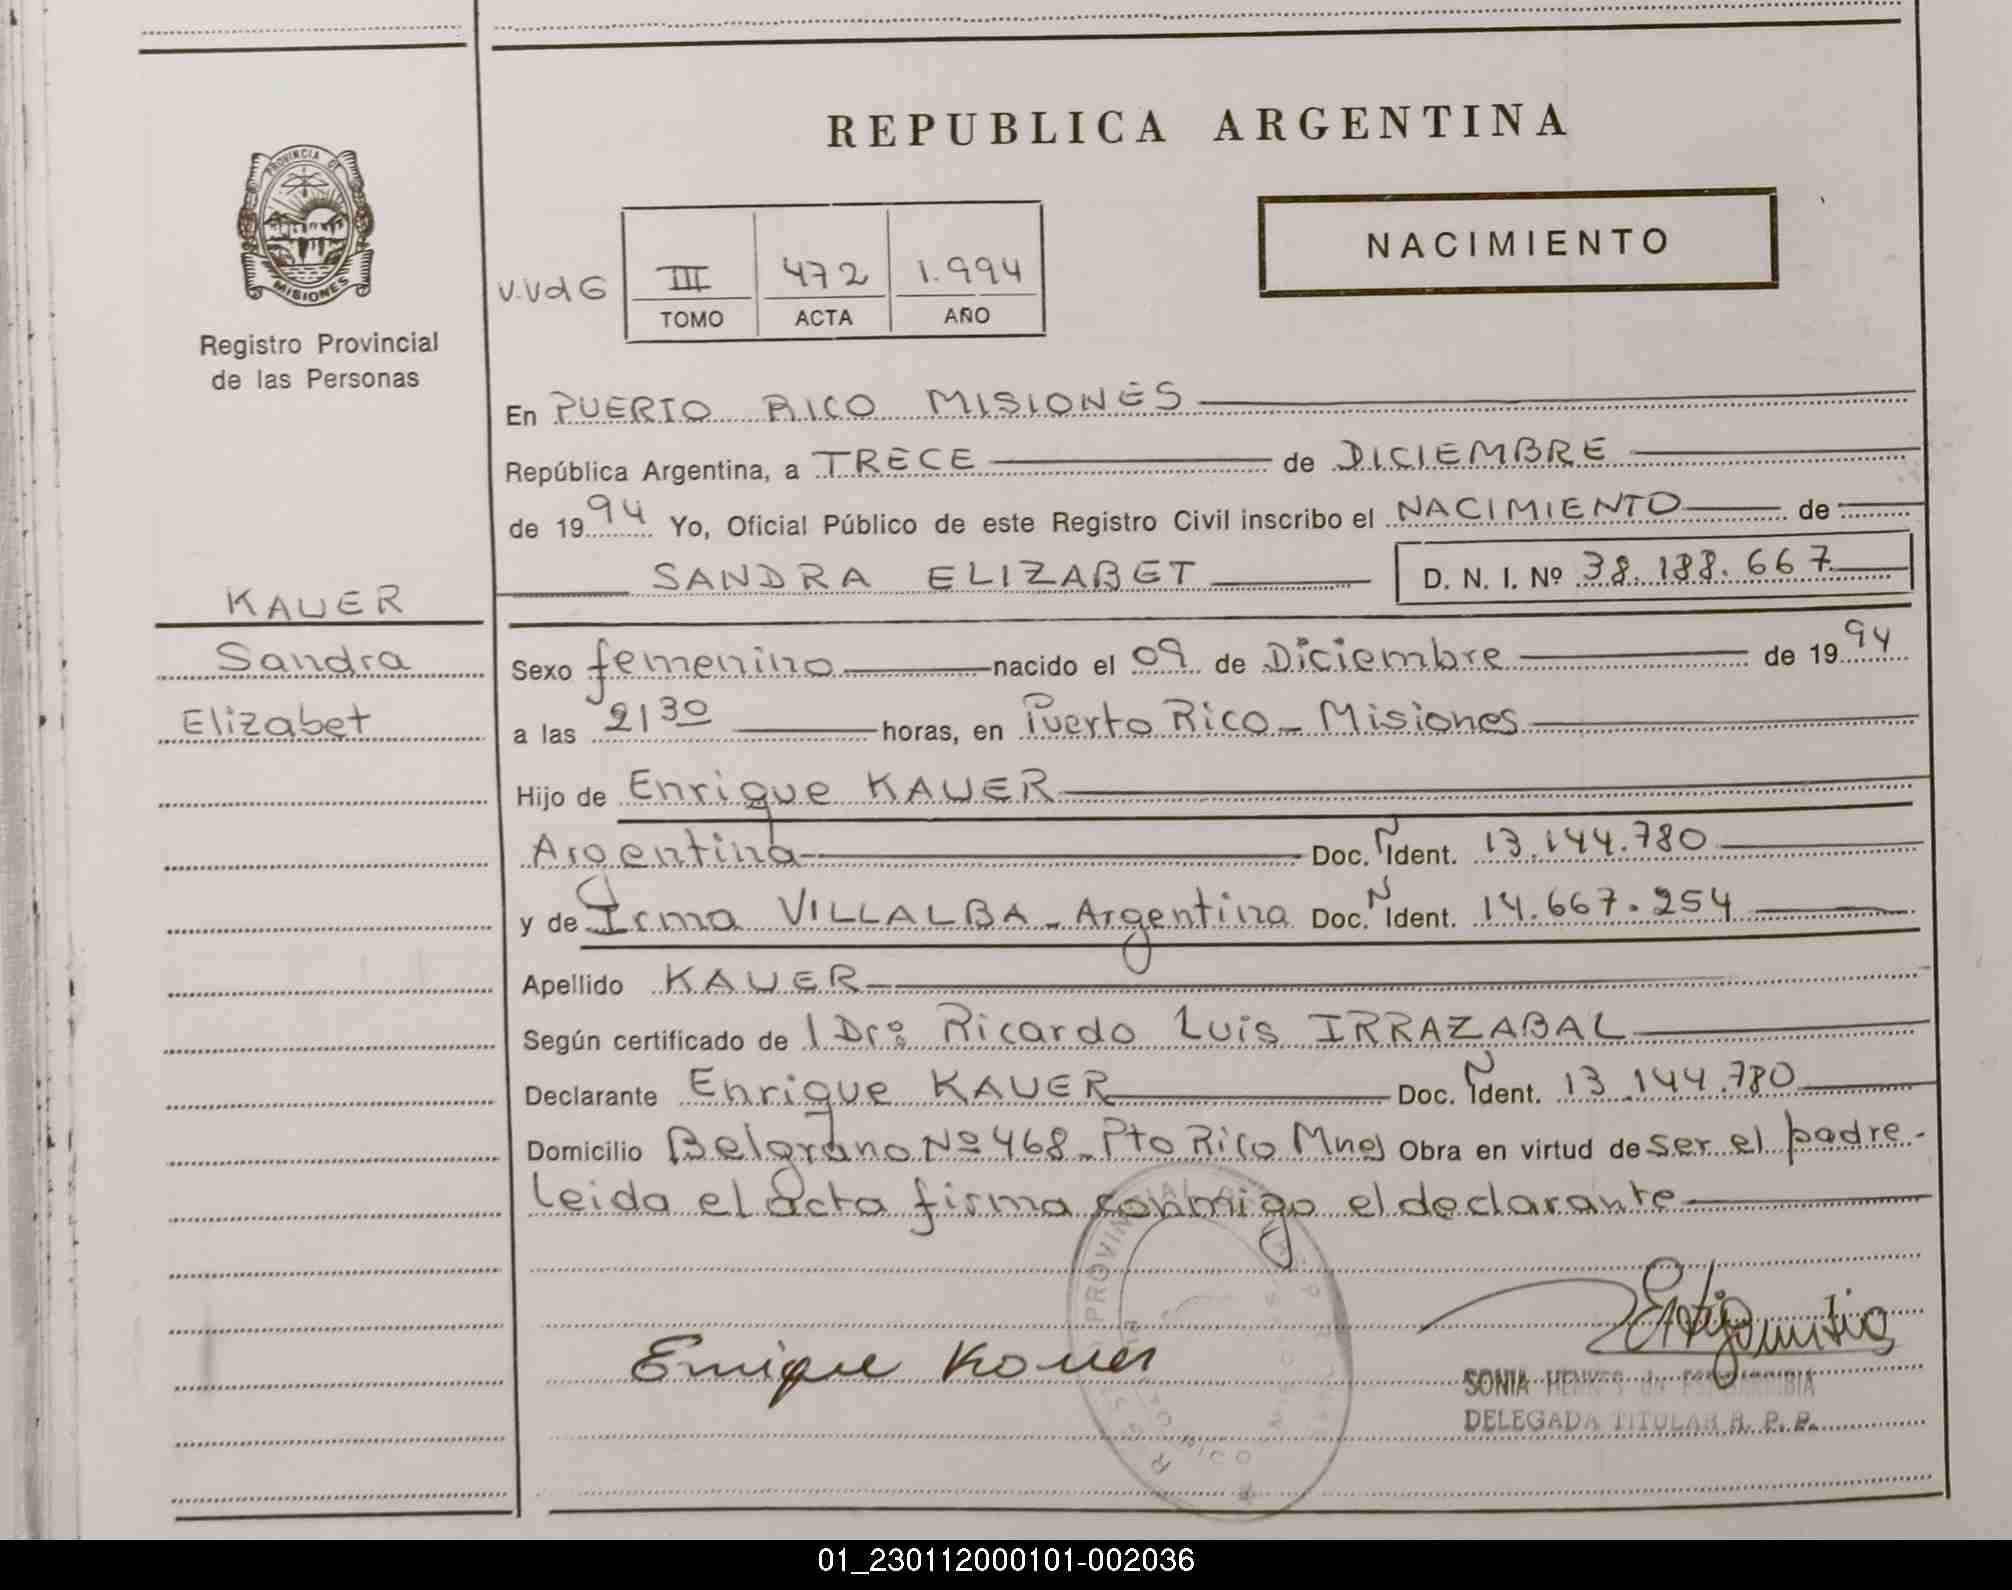 REPUBLICA ARGENTINA
PROVINCIA DE
MISIONES
Registro Provincial
de las Personas
NACIMIENTO
V.VdG
III 472 1.994
TOMO ACTA AÑO
En PUERTO RICO MISIONES
República Argentina, a TRECE de DICIEMBRE
de 1994 Yo, Oficial Público de este Registro Civil inscribo el NACIMIENTO de
SANDRA ELIZABET D. N. I. Nº 38.188.667
KAUER
Sandra
Elizabet
Sexo femenino nacido el 09 de Diciembre de 1994
a las 21 30 horas, en Puerto Rico - Misiones
Hijo de Enrique KAUER
Argentina Doc. Ñ Ident. 13.144.780
y de Irma VILLALBA - Argentina Doc. Ñ Ident. 14.667.254
Apellido KAUER
Según certificado de l Dr: Ricardo Luis IRRAZABAL
Declarante Enrique KAUER Doc. Ñ Ident. 13.144.780
Domicilio Belgrano Nº 468 - Pto Rico Mnes Obra en virtud de ser el padre -
leida el acta firma conmigo el declarante
PROVINCIAL
Enrique Kauer
SONIA HENKES de
DELEGADA TITULAR R. P. P.
01_230112000101-002036